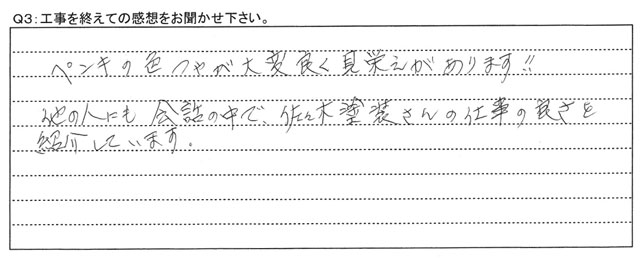 Q3:工事を終えての感想をお聞かせ下さい。
ペンキの色つやが大変良く見栄えがあります!!
他の人にも会話の中で、佐々木塗装さんの仕事の良さを
紹介しています。